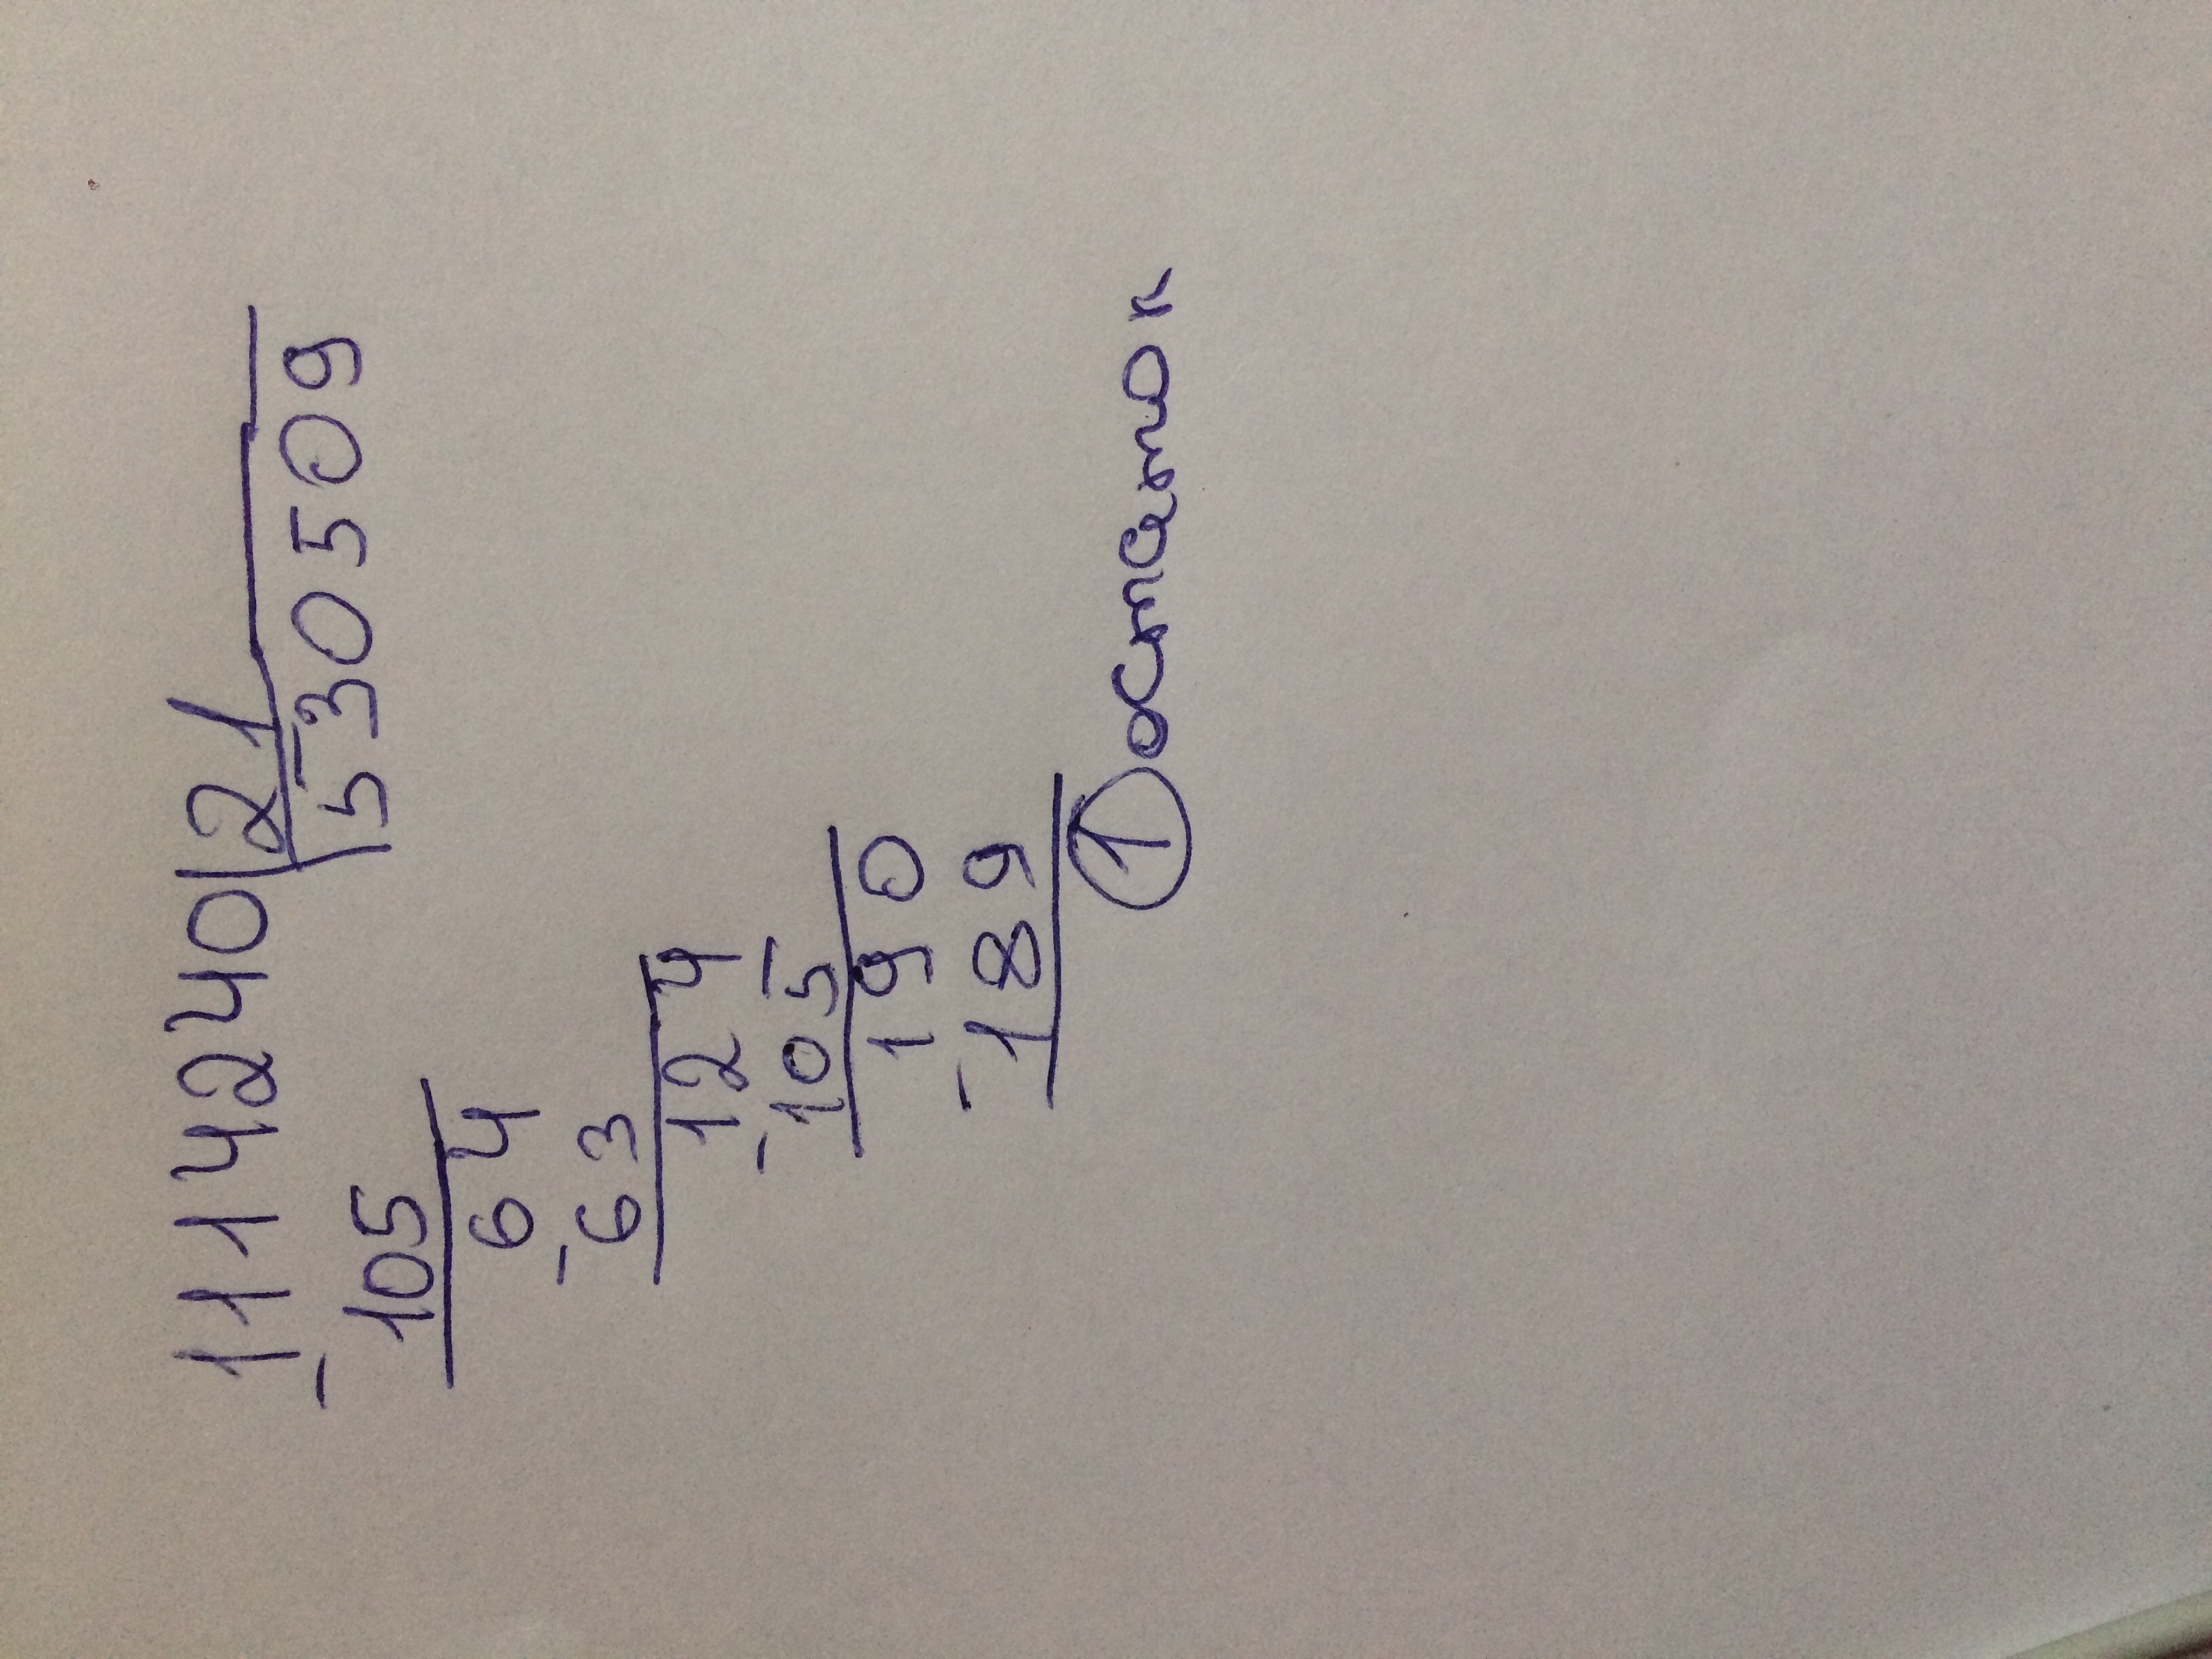 11142401 21
- 105 530509
64
- 63
124
- 105
190
- 189
1 остаток